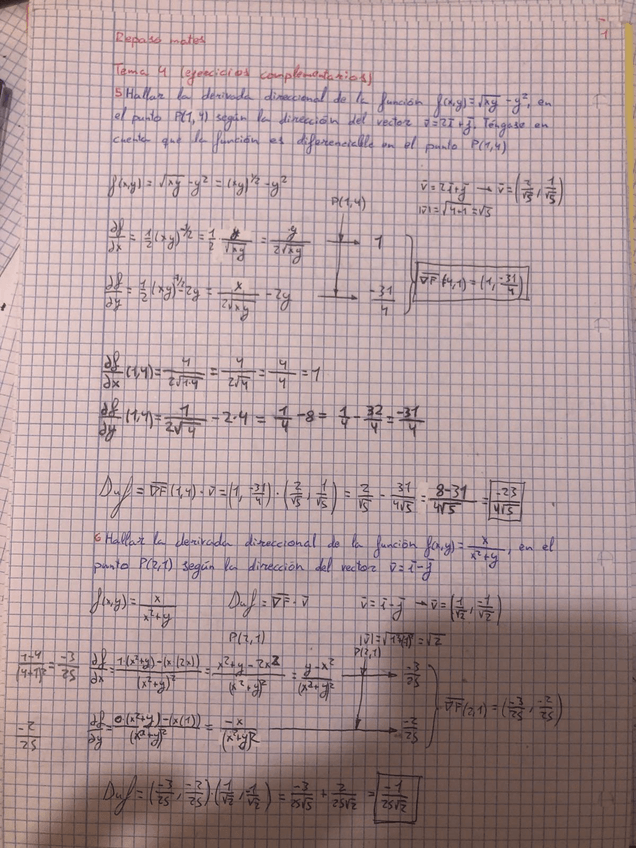 1
Repaso mates
Tema 4 (ejercicios complementarios)
5 Hallar la derivada direccional de la función f(x,y)=√xy - y², en
el punto P(1,4) según la dirección del vector v̄=2ī+j̄. Téngase en
cuenta que la función es diferenciable en el punto P(1,4)
f(x,y)=√xy - y² = (xy)^1/2 - y²
v̄=2ī+j̄ → v̄=(2/√5, 1/√5)
P(1,4)
|v̄|=√4+1=√5
∂f/∂x = 1/2 (xy)^-1/2 = 1/2 y/√xy = y/2√xy → 1
∂f/∂y = 1/2 (xy)^-1/2 - 2y = x/2√xy - 2y → -31/4
∇F(4,1)=(1, -31/4)
∂f/∂x (1,4) = 4/2√1·4 = 4/2√4 = 4/4 = 1
∂f/∂y (1,4) = 1/2√4 - 2·4 = 1/4 - 8 = 1/4 - 32/4 = -31/4
Duf = ∇F(1,4)·v̄ = (1, -31/4)·(2/√5, 1/√5) = 2/√5 - 31/4√5 = 8-31/4√5 = -23/4√5
6 Hallar la derivada direccional de la función f(x,y)= x/x²+y, en el
punto P(2,1) según la dirección del vector v̄=ī-j̄
f(x,y)= x/x²+y
Duf = ∇F·v̄
v̄=ī-j̄ → v̄=(1/√2, -1/√2)
P(2,1)
=√2
P(2,1)
1-4/(4+1)² = -3/25
∂f/∂x = 1·(x²+y)-(x(2x))/(x²+y)² = x²+y-2x²/(x²+y)² = y-x²/(x²+y)² → -3/25
∇F(2,1)=(-3/25, -2/25)
-2/25
∂f/∂y = 0(x²+y)-(x(1))/(x²+y)² = -x/(x²+y)² → -2/25
Duf = (-3/25, -2/25)·(1/√2, -1/√2) = -3/25√2 + 2/25√2 = -1/25√2